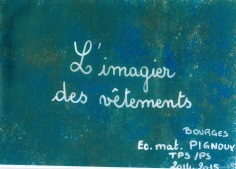 L'imagier
des vêtements
BOURGES
Ec. mat. PIGNOUX
TPS/PS
2014.2015